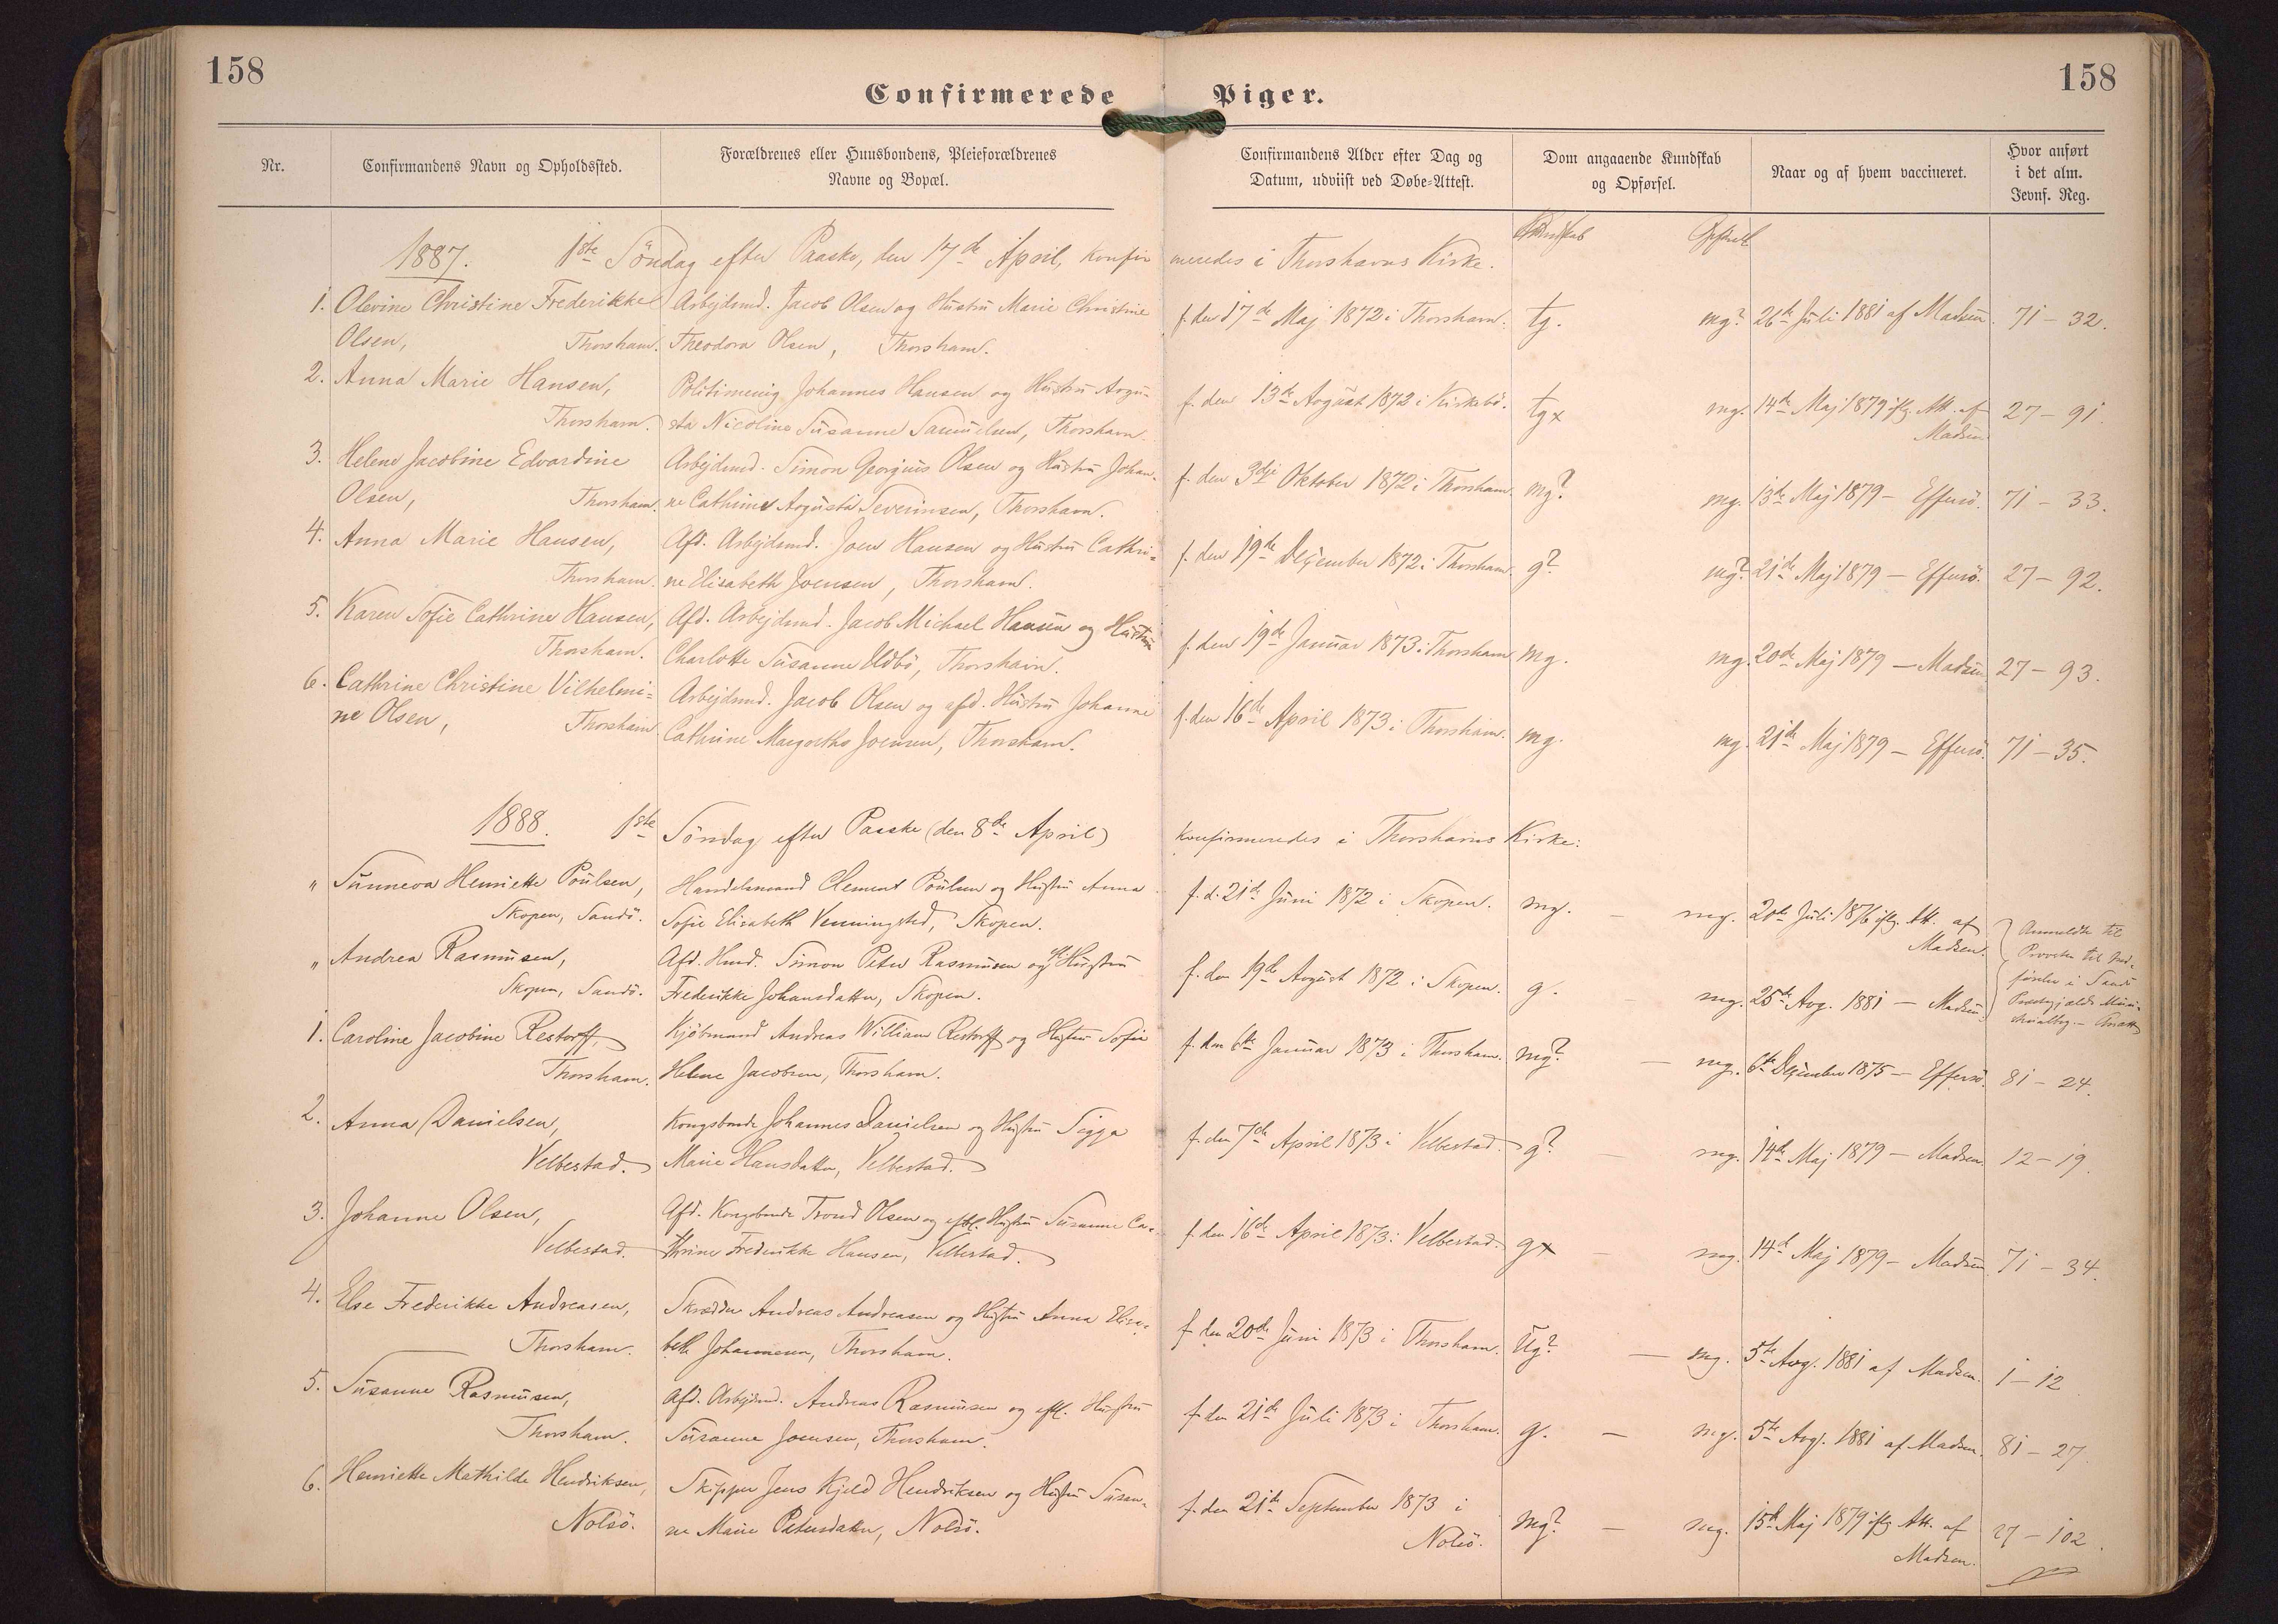 158
158
Confirmerede Piger.
Nr.
Confirmandens Navn og Opholdssted.
Forældrenes eller Huusbondens, Pleieforældrenes
Navne og Bopæl.
Confirmandens Alder efter Dag og
Datum, udviist ved Døbe-Attest.
Dom angaaende Kundskab
og Opførsel.
Naar og af hvem vaccineret.
Hvor anført
i det alm.
Jevnf. Reg.
Kundskab
1887. 1ste Söndag efter Paaske, den 17de April, Konfirmeredes i Thorshavns Kirke.
1. Olevine Christine Frederikke Arbejdsmd. Jacob Olsen og Hustru Marie Christine f. den 17de Maj 1872 i Thorshavn. tg. mg? 26de Juli 1881 af Madsen. 71-32.
Olsen, Thorshavn. Theodora Olsen, Thorshavn.
2. Anna Marie Hansen, Politimenig Johannes Hansen og Hustru Avgu- f. den 13de Avgust 1872 i Kirkebö. tg× mg. 14de Maj 1879 iflg. Att. af 27-91.
Thorshavn. sta Nicoline Susanne Samuelsen, Thorshavn. Madsen
3. Helene Jacobine Edvardine Arbejdsmd. Simon Georgius Olsen og Hustru Johan- f. den 3dje Oktober 1872 i Thorshavn. mg? mg. 13de Maj 1879 - Effersö. 71-33.
Olsen, Thorshavn. ne Cathrine Avgusta Severinsen, Thorshavn.
4. Anna Marie Hansen, Afd. Arbejdsmd. Joen Hansen og Hustru Cathri- f. den 19de December 1872 i Thorshavn. g? mg? 21de Maj 1879 - Effersö. 27-92.
Thorshavn. ne Elisabeth Joensen, Thorshavn.
5. Karen Sofie Cathrine Hansen, Afd. Arbejdsmd. Jacob Michael Hansen og Hustru f. den 19de Januar 1873 i Thorshavn mg. mg. 20de Maj 1879 - Madsen. 27-93.
Thorshavn. Charlotte Susanne Thorshavn.
6. Cathrine Christine Vilhelmi- Arbejdsmd. Jacob Olsen og afd. Hustru Johanne f. den 16de April 1873 i Thorshavn. mg. mg. 21de Maj 1879 - Effersö. 71-35.
ne Olsen, Thorshavn. Cathrine Margretha Joensen, Thorshavn.
1888. 1ste Söndag efter Paaske (den 8de April) Konfirmeredes i Thorshavns Kirke:
" Sunneva Henriette Poulsen, Handelsmand Clement Poulsen og Hustru Anna f. d. 21de Juni 1872 i Skopen. mg. - mg. 20de Juli 1876 iflg. Att. af Anmeldte til
Skopen, Sandö. Sofie Elisabeth Venningsted, Skopen. Madsen. Provsten til Ind-
" Andrea Rasmusen, Afd. Hmd. Simon Peter Rasmusen og Hustru f. den 19de Avgust 1872 i Skopen. g. - mg. 25de Avg. 1881 - Madsen. förelse i Sandö
Skopen, Sandö. Frederikke Johansdatter, Skopen.
1. Caroline Jacobine Restorff, Kjöbmand Andreas William Restorff og Hustru Sofie f. den 6te Januar 1873 i Thorshavn. mg? - mg. 6te December 1875 - Effersö. 81-24.
Thorshavn. Helene Jacobsen, Thorshavn.
2. Anna Danielsen, Kongsbonde Johannes Danielsen og Hustru Sigga f. den 7de April 1873 i Velbestad. g? - mg. 14de Maj 1879 - Madsen. 12-19.
Velbestad. Marie Hansdatter, Velbestad.
3. Johanne Olsen, Afd. Kongsbonde Trond Olsen og eftl. Hustru Susanne Ca- f. den 16de April 1873 i Velbestad. g× - mg. 14de Maj 1879 - Madsen. 71-34.
Velbestad. thrine Frederikke Hansen, Velbestad.
4. Else Frederikke Andreasen, Skrædder Andreas Andreasen og Hustru Anna Elisa- f. den 20de Juni 1873 i Thorshavn. Ug? - mg. 5te Avg. 1881 af Madsen. 1-12
Thorshavn. beth Johannesen, Thorshavn.
5. Susanne Rasmusen, Afd. Arbejdsmd. Andreas Rasmusen og eftl. Hustru f. den 21de Juli 1873 i Thorshavn. g. - mg. 5te Avg. 1881 af Madsen. 81-27.
Thorshavn. Susanne Joensen, Thorshavn.
6. Henriette Mathilde Hendriksen, Skipper Jens Kjeld Hendriksen og Hustru Susan- f. den 21de September 1873 i mg? - mg. 15de Maj 1879 iflg. Att. af 27-102.
Nolsö. ne Marie Petersdatter, Nolsö. Nolsö. Madsen.